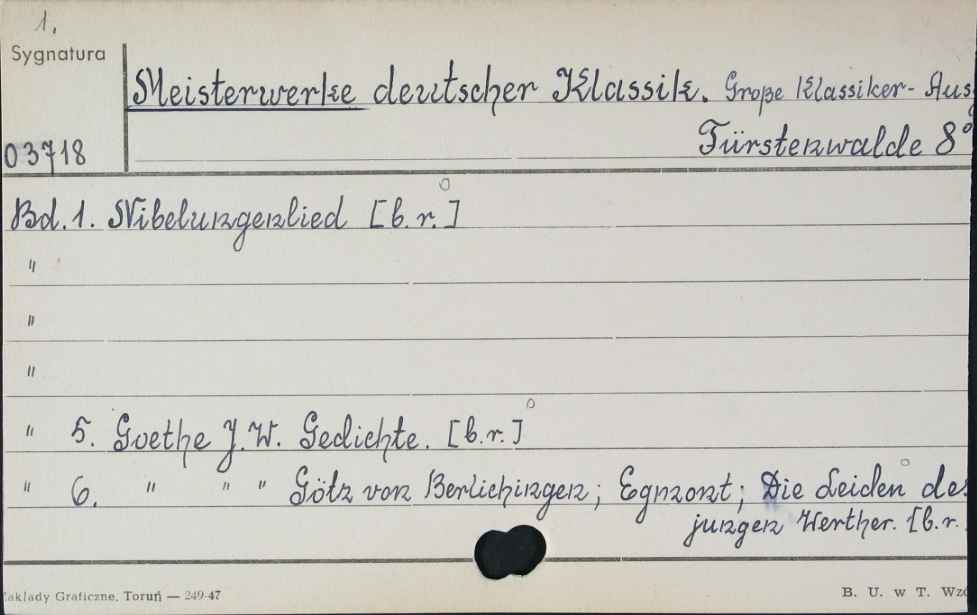 1.
Sygnatura
Meisterwerke deutscher Klassik. Große Klassiker- Aus
03718
Fürstenwalde 8°
Bd. 1. Nibelungenlied [b.r.]
"
"
"
" 5. Goethe J.W. Gedichte. [b.r.]
" 6. " " " Götz von Berlichingen; Egmont; Die Leiden des
jungen Werther. [b.r.
Zakłady Graficzne, Toruń — 249-47
B. U. w T. Wzó